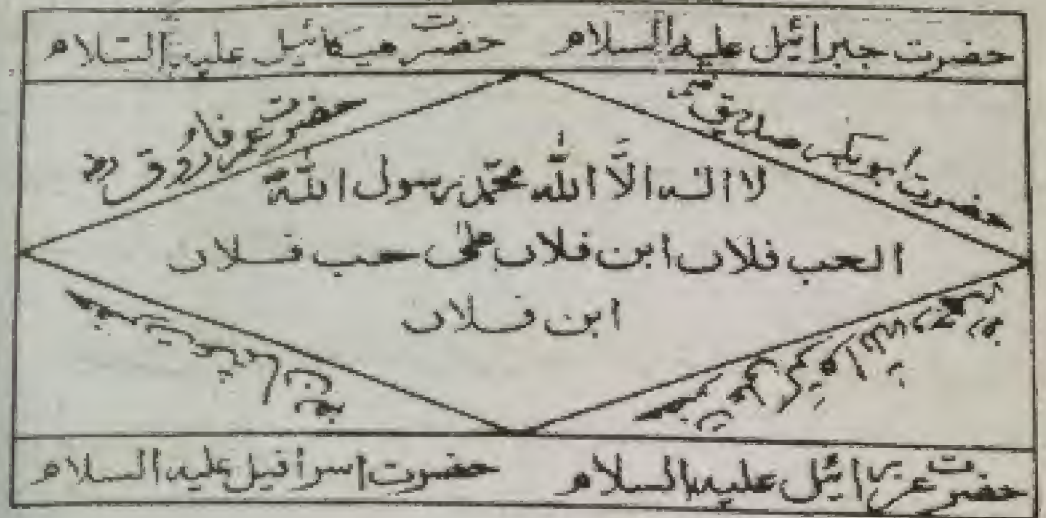 حضرت جبرائیل علیہ السلام حضرت میکائیل علیہ السلام
حضرت ابوبکر صدیق رض
حضرت عمر فاروق رض
لا الہ الّا اللہ محمّد رسول اللہ
الحب فلاں ابن فلاں علیٰ حب فلاں
ابن فلاں
حضرت عزرائیل علیہ السلام حضرت اسرافیل علیہ السلام